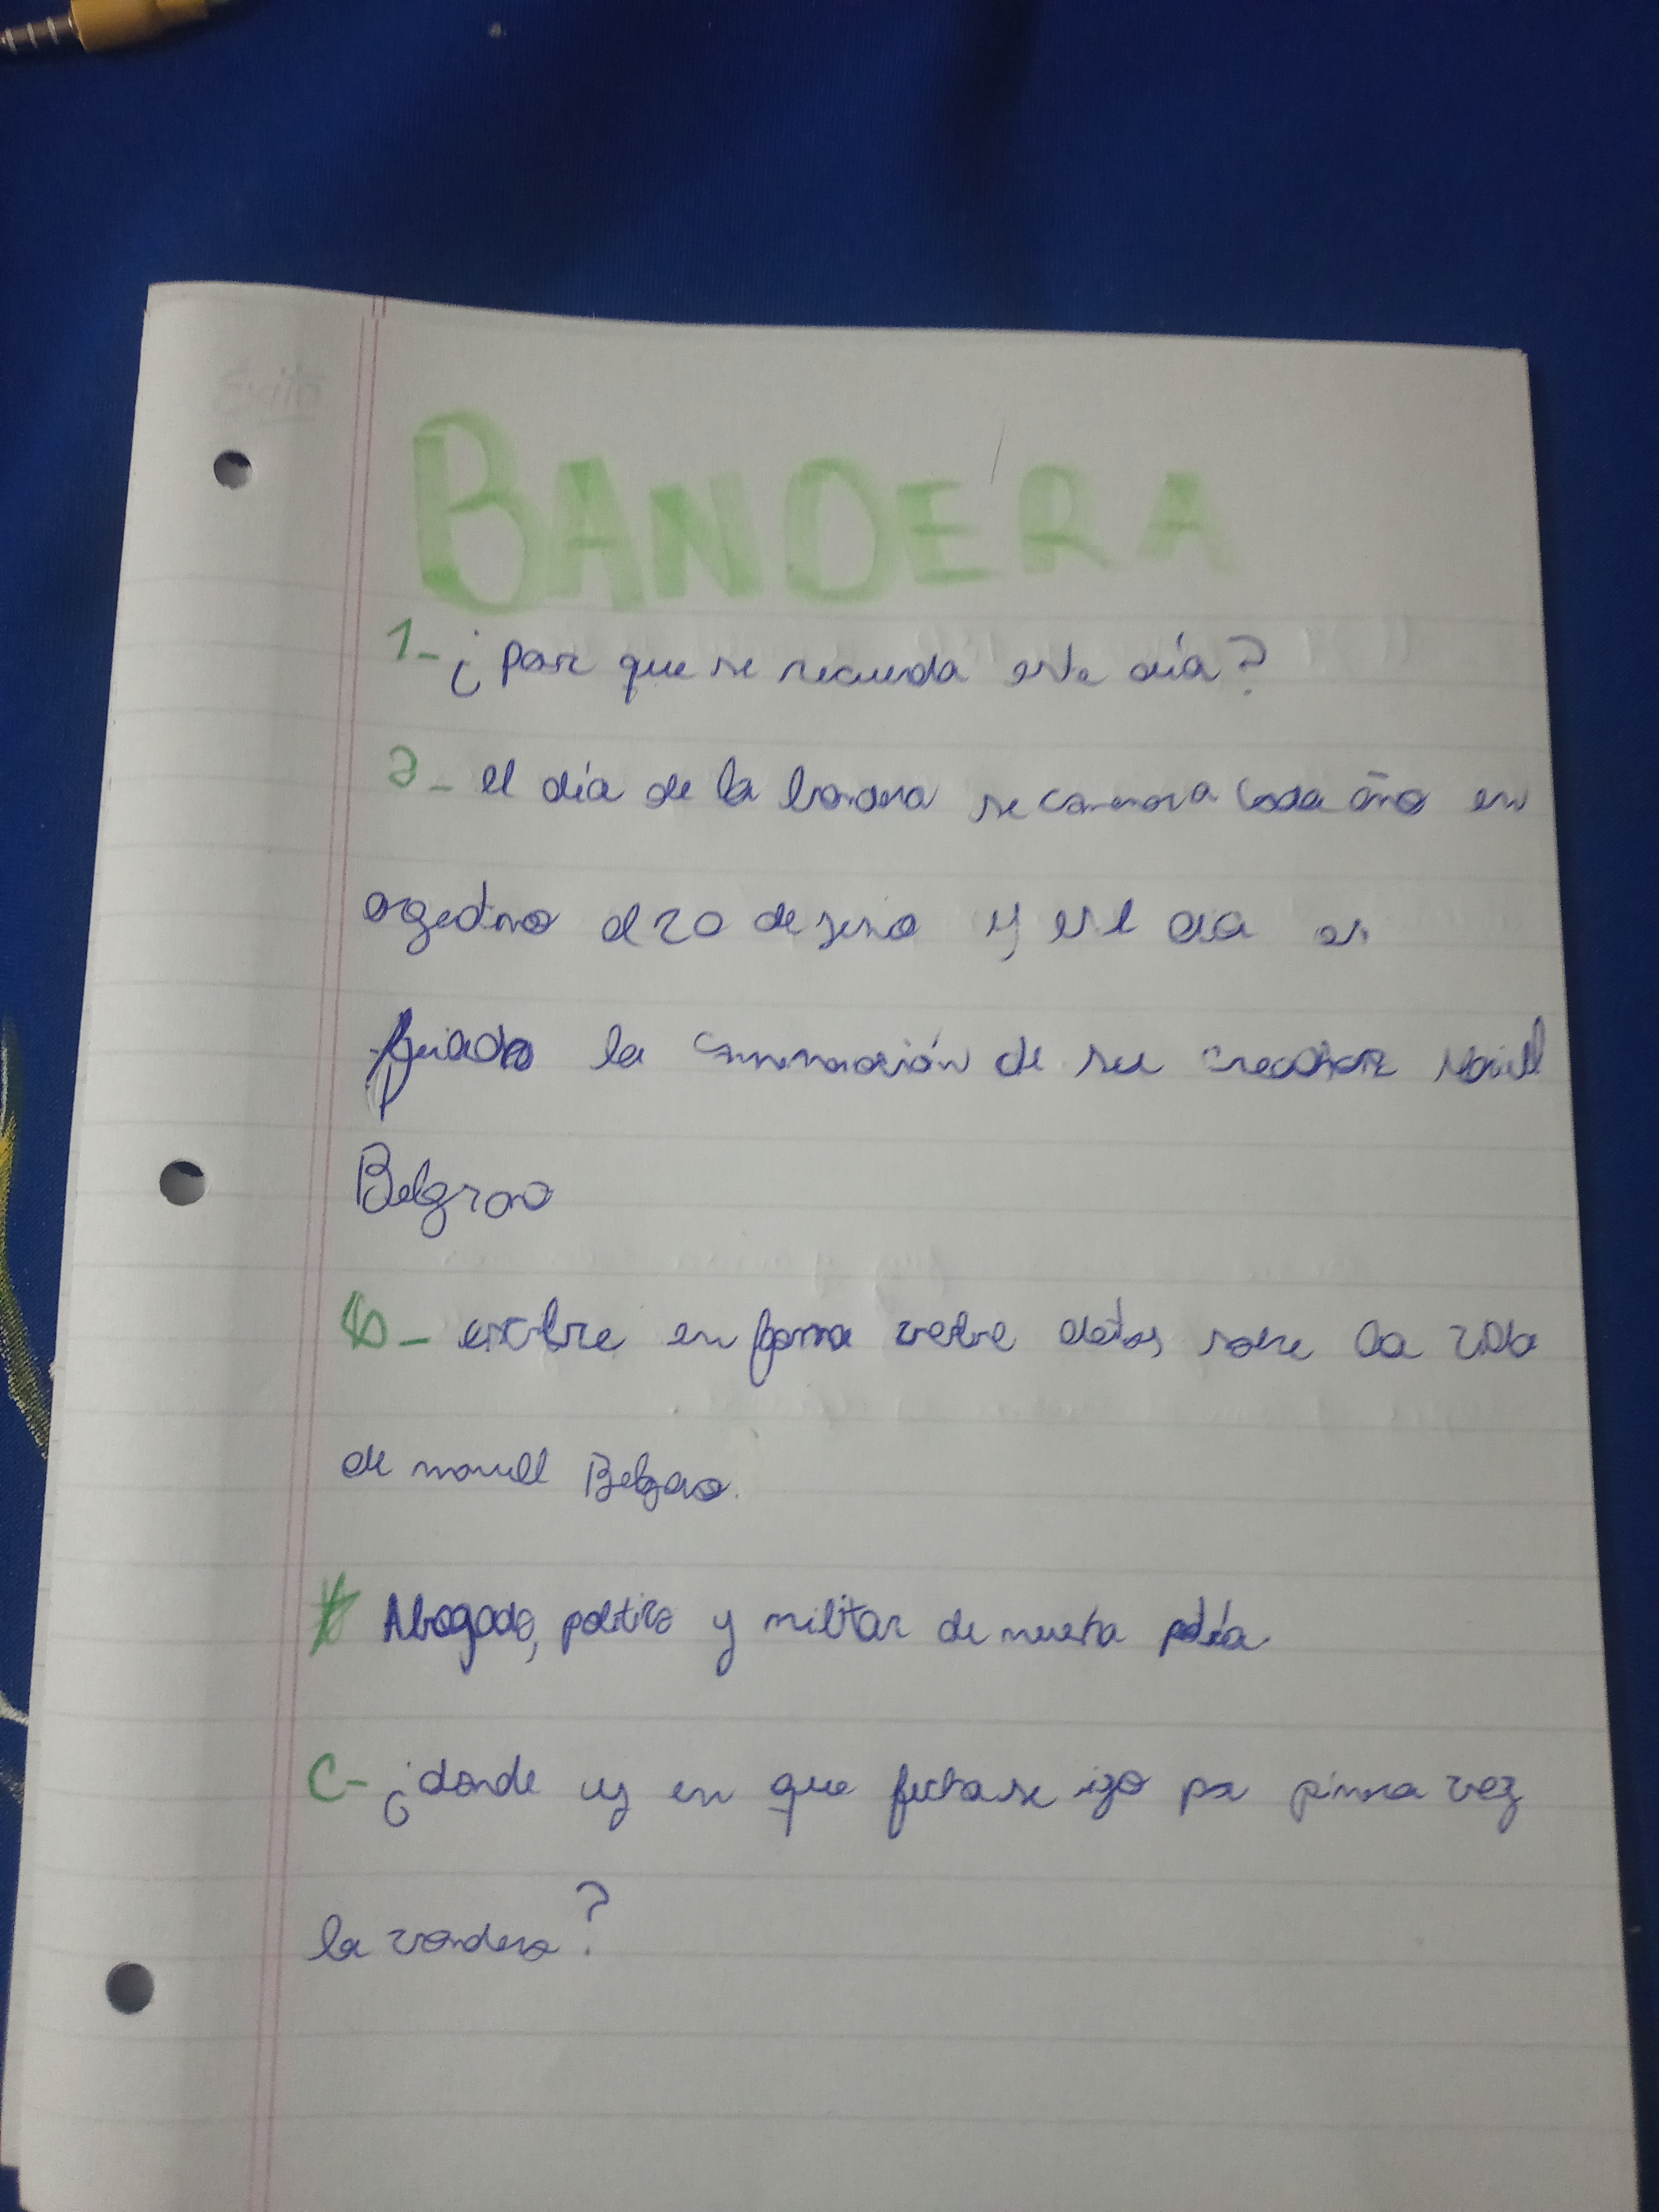 Éxito
BANDERA
1- ¿por que se recuerda este día?
2- el día de la bandera se conmora cada año en
argentina el 20 de junio y ese día es
feriado la conmoración de su creador Manuel
Belgrano
B- escribre en forma vreve datos sobre la vida
de manuel Belgrano.
Abogado, politico y militar de nuestra patria.
C- ¿donde y en que fecha se izo por primera vez
la vandera?